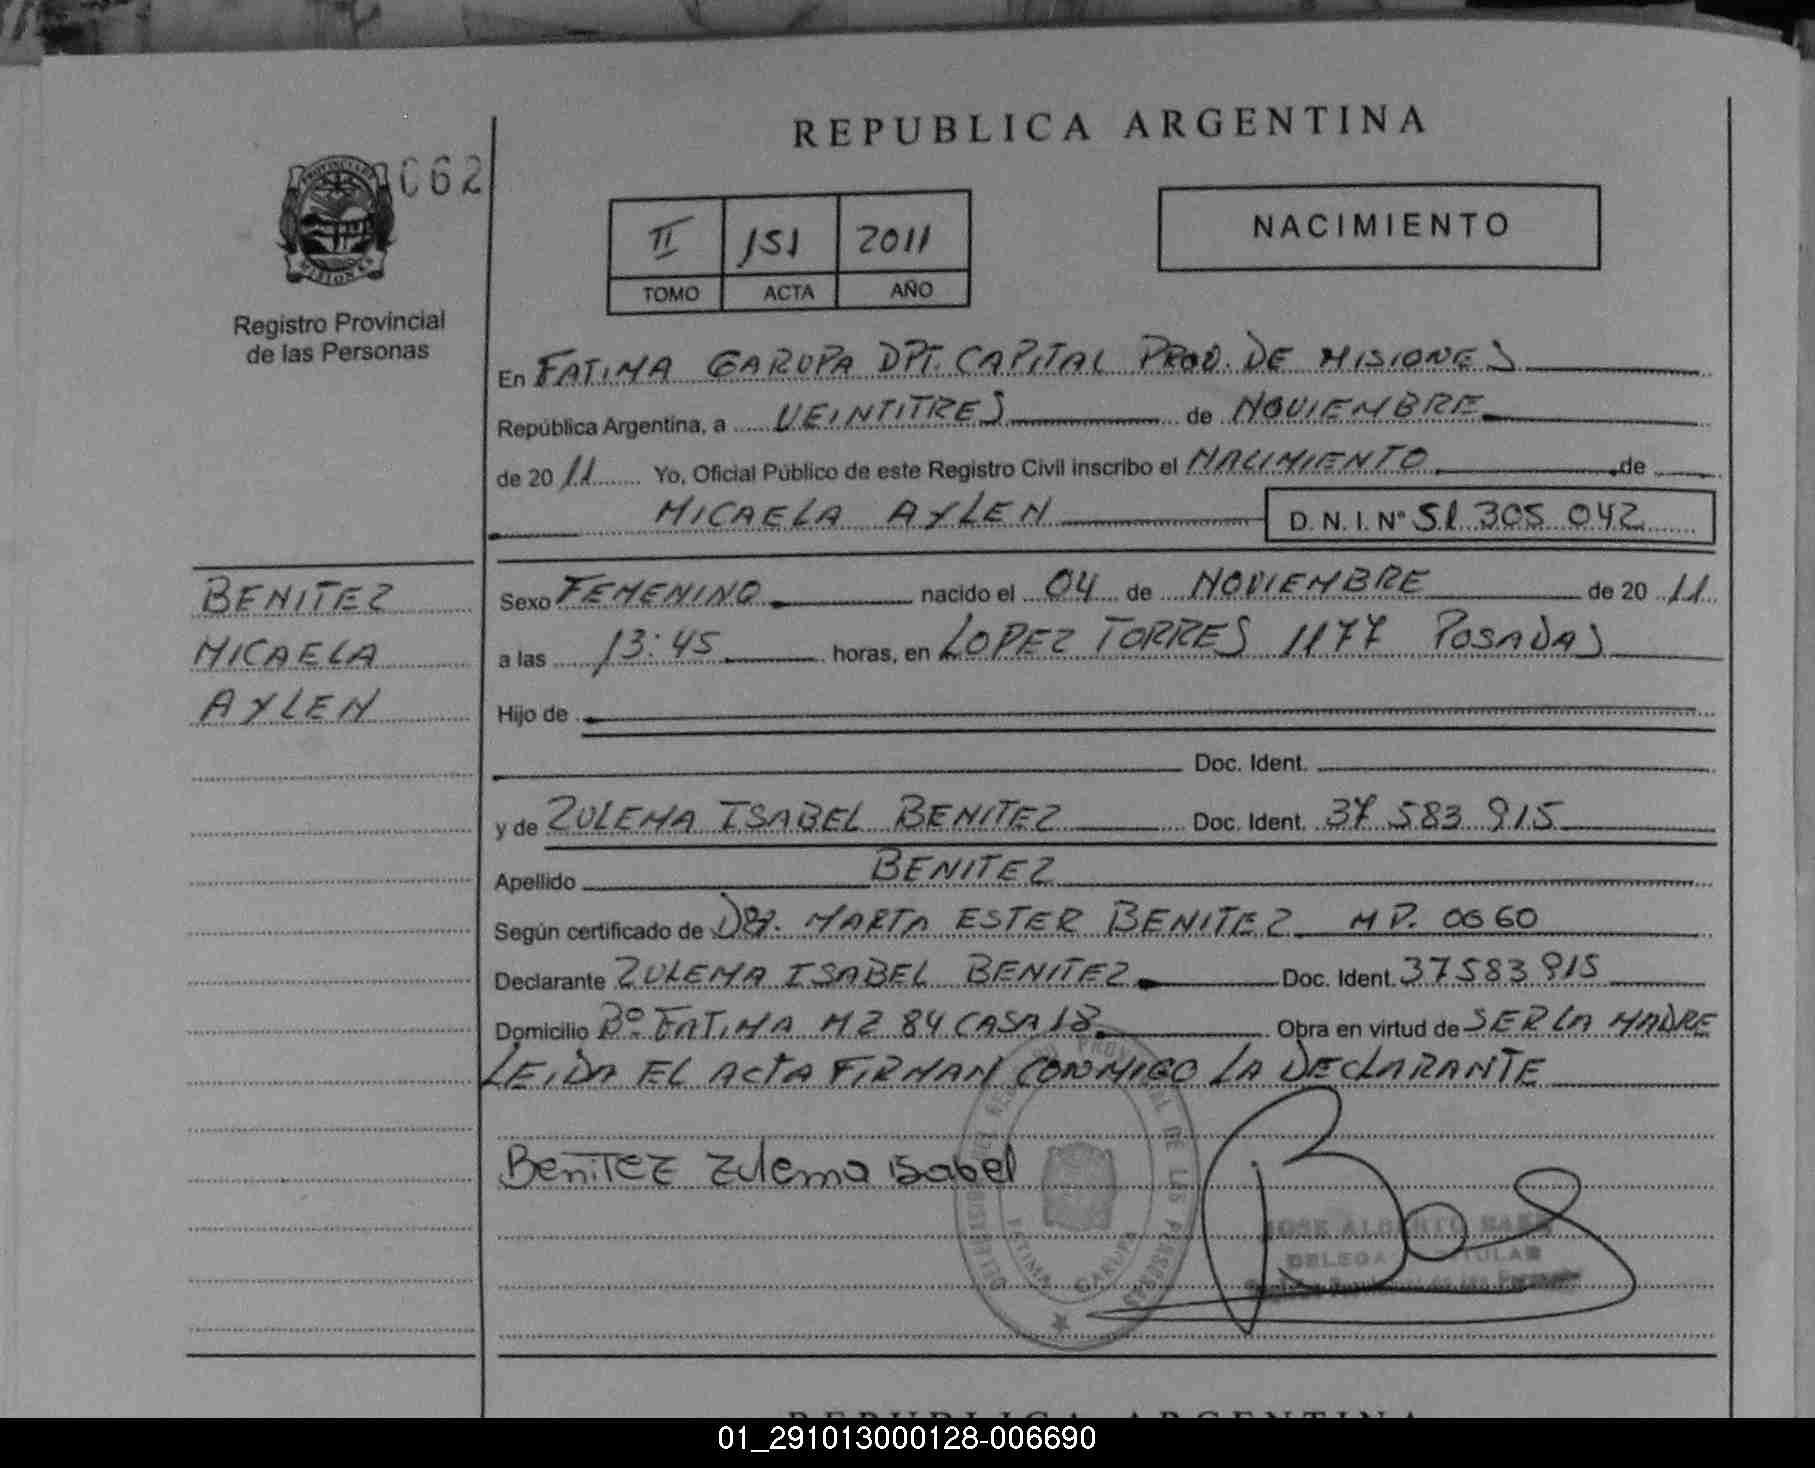 REPUBLICA ARGENTINA
062
PROVINCIA DE MISIONES
Registro Provincial
de las Personas
II 151 2011
TOMO ACTA AÑO
NACIMIENTO
En FATIMA GARUPA DPT. CAPITAL PROV. DE MISIONES
República Argentina, a VEINTITRES de NOVIEMBRE
de 2011 Yo, Oficial Público de este Registro Civil inscribo el NACIMIENTO de
MICAELA AYLEN D.N.I. Nº 51 305 042
BENITEZ
MICAELA
AYLEN
Sexo FEMENINO nacido el 04 de NOVIEMBRE de 2011
a las 13:45 horas, en LOPEZ TORRES 1177 POSADAS
Hijo de
Doc. Ident.
y de ZULEMA ISABEL BENITEZ Doc. Ident. 37 583 915
Apellido BENITEZ
Según certificado de DRA. MARTA ESTER BENITEZ MP. 0660
Declarante ZULEMA ISABEL BENITEZ Doc. Ident. 37583915
Domicilio Bº FATIMA MZ 84 CASA 18 Obra en virtud de SER LA MADRE
LEIDA EL ACTA FIRMAN CONMIGO LA DECLARANTE
Benitez Zulema Isabel
PROVINCIAL DE LAS PERSONAS
FATIMA GARUPA
JOSE ALBERTO
DELEGADO TITULAR
REPUBLICA ARGENTINA
01_291013000128-006690